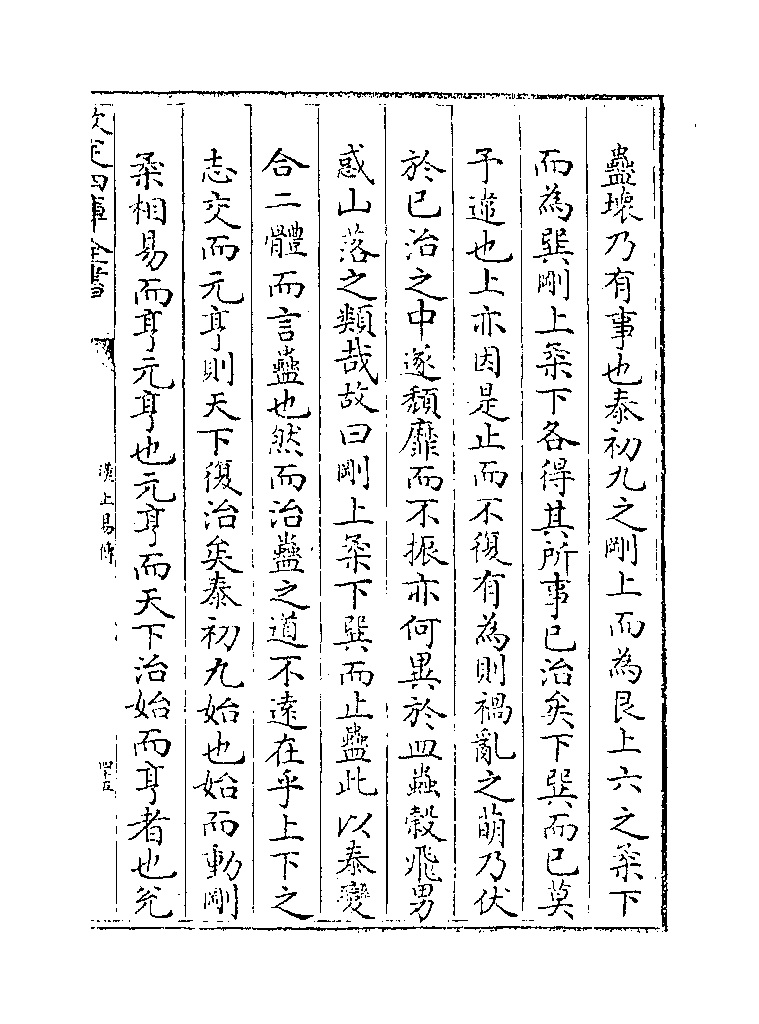 蠱壊乃有事也泰初九之剛上而為艮上六之柔下
而為巽剛上柔下各得其所事已治矣下巽而已莫
予遳也上亦因是止而不復有為則禍亂之萌乃伏
於已治之中遂頽靡而不振亦何異於皿蟲榖飛男
惑山落之類哉故曰剛上柔下巽而止蠱此以泰變
合二體而言蠱也然而治蠱之道不逺在乎上下之
志交而元亨則天下復治矣泰初九始也始而動剛
柔相易而亨元亨也元亨而天下治始而亨者也兊
欽定四庫全書
漢上易傳
四十五